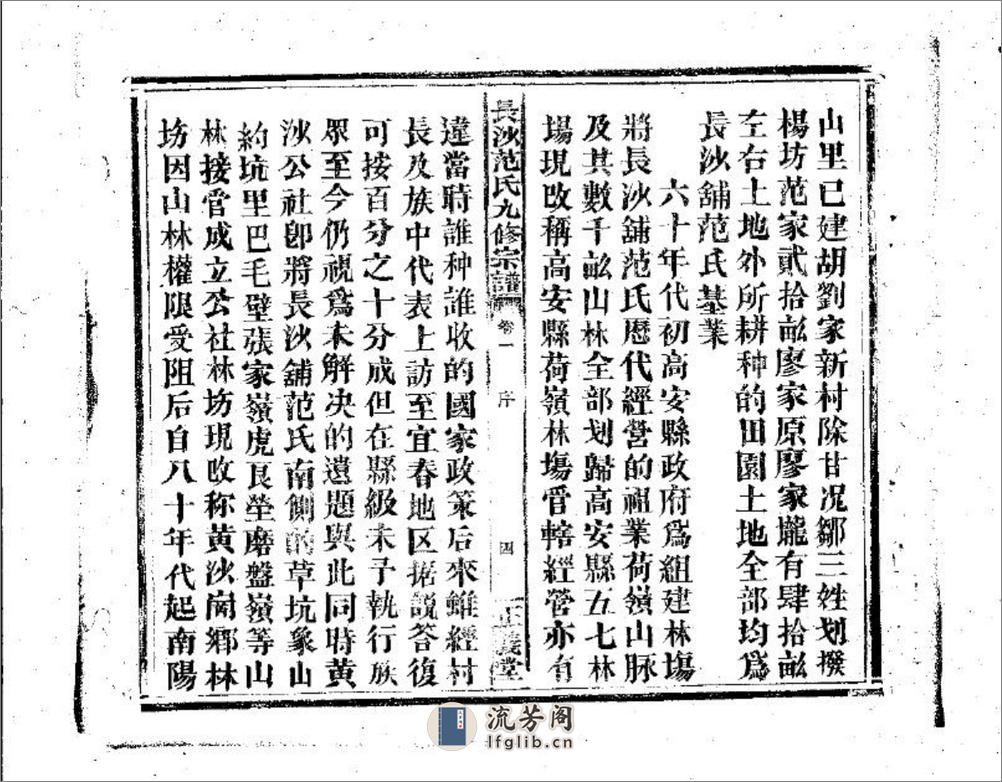 山里已建胡劉家新村除甘况鄒三姓划撥
楊坊范家貳拾畝廖家原廖家壠有肆拾畝
左右土地外所耕种的田園土地全部均爲
長沙舖范氏基業
六十年代初高安縣政府爲組建林塲
將長沙舖范氏歷代經营的祖業荷嶺山脉
及其數千畝山林全部划歸高安縣五七林
場現改稱高安縣荷嶺林塲管轄經營亦有
長沙范氏九修宗譜 卷一 序 四 正義堂
違當時誰种誰收的國家政策后來雖經村
長及族中代表上訪至宜春地区据説答復
可按百分之十分成但在縣級未予執行族
眾至今仍視爲未解决的遺題與此同時黄
沙公社卽將長沙舖范氏南側的草坑象山
約坑里巴毛壁張家嶺虎艮垄磨盤嶺等山
林接管成立公社林坊現改称黄沙崗鄉林
坊因山林權限受阻后自八十年代起南陽
流芳阁
lfglib.cn